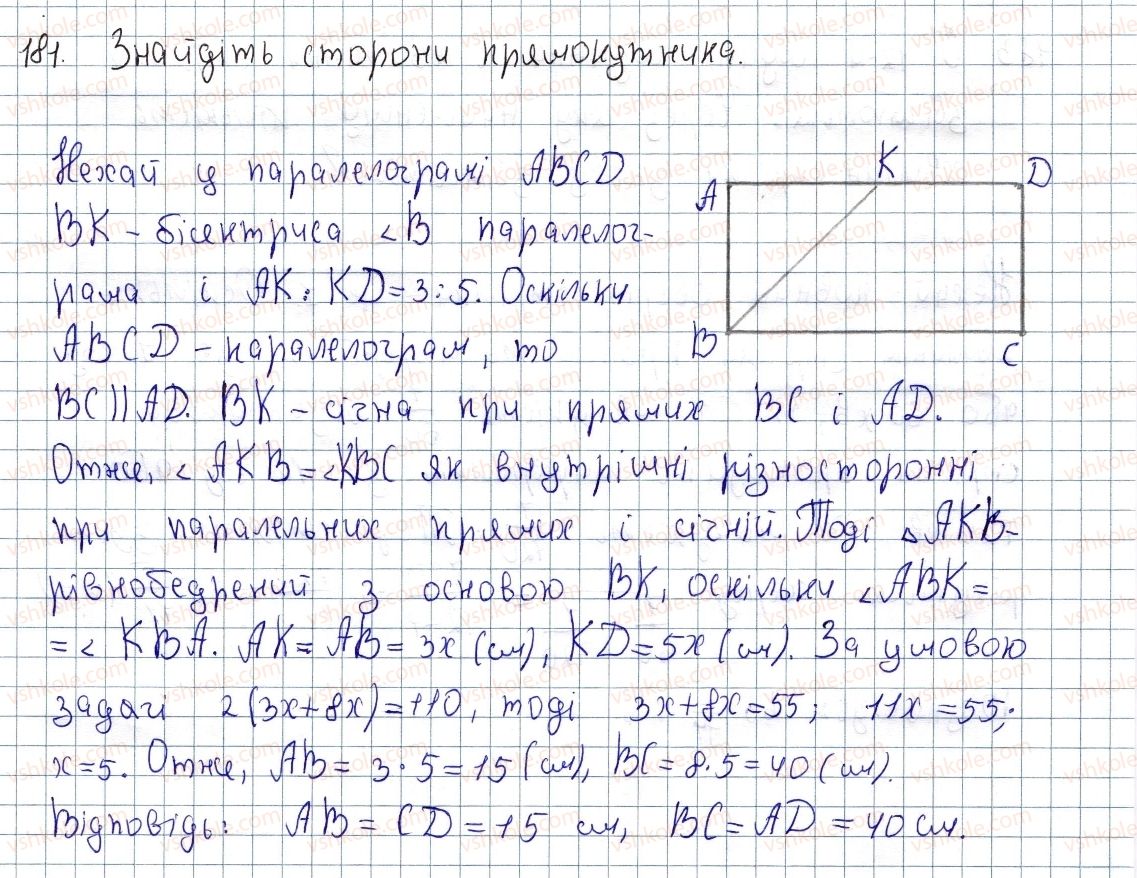 181. Знайдіть сторони прямокутника.
Нехай у паралелограмі ABCD
BK - бісектриса ∠B паралелог-
рама і AK : KD = 3 : 5. Оскільки
ABCD - паралелограм, то
BC || AD. BK - січна при прямих BC і AD.
Отже, ∠AKB = ∠KBC як внутрішні різносторонні
при паралельних прямих і січній. Тоді △AKB -
рівнобедрений з основою BK, оскільки ∠ABK =
= ∠KBA. AK = AB = 3x (см), KD = 5x (см). За умовою
задачі 2(3x + 8x) = 110, тоді 3x + 8x = 55; 11x = 55;
x = 5. Отже, AB = 3 · 5 = 15 (см), BC = 8 · 5 = 40 (см).
Відповідь: AB = CD = 15 см, BC = AD = 40 см.
A K D
B C
vshkole.com